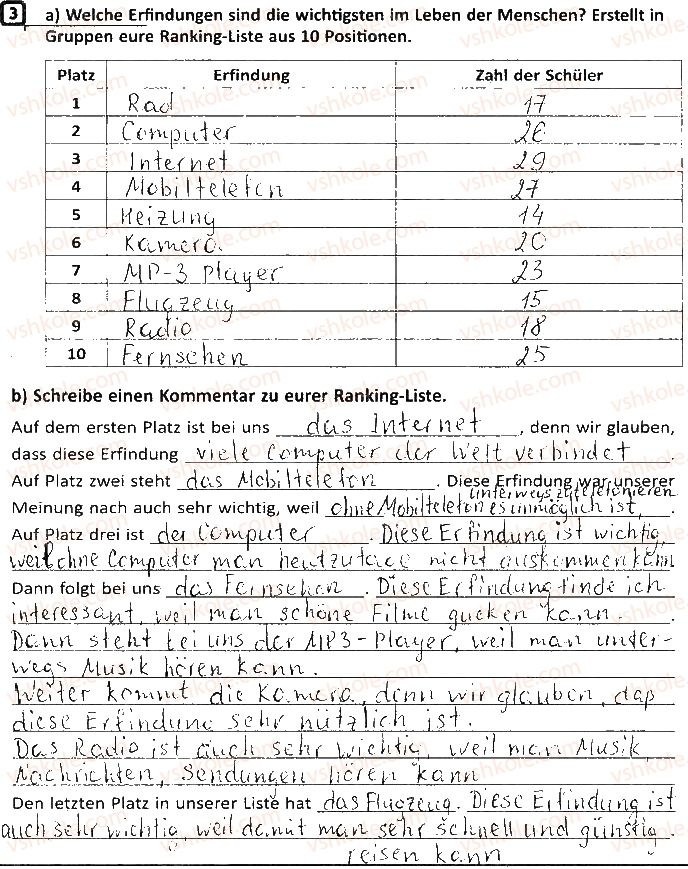 3 a) Welche Erfindungen sind die wichtigsten im Leben der Menschen? Erstellt in
Gruppen eure Ranking-Liste aus 10 Positionen.
Platz Erfindung Zahl der Schüler
1 Rad 17
2 Computer 26
3 Internet 29
4 Mobiltelefon 27
5 Heizung 14
6 Kamera 20
7 MP-3 Player 23
8 Flugzeug 15
9 Radio 18
10 Fernsehen 25
b) Schreibe einen Kommentar zu eurer Ranking-Liste.
Auf dem ersten Platz ist bei uns das Internet, denn wir glauben,
dass diese Erfindung viele Computer der Welt verbindet
Auf Platz zwei steht das Mobiltelefon. Diese Erfindung war unserer
unterwegs zu telefonieren
Meinung nach auch sehr wichtig, weil ohne Mobiltelefon es unmöglich ist,.
Auf Platz drei ist der Computer. Diese Erfindung ist wichtig,
weil ohne Computer man heutzutage nicht auskommen kann
Dann folgt bei uns das Fernsehen. Diese Erfindung finde ich
interessant, weil man schöne Filme gucken kann.
Dann steht bei uns der MP3-Player, weil man unter-
wegs Musik hören kann.
Weiter kommt die Kamera, denn wir glauben, daß
diese Erfindung sehr nützlich ist.
Das Radio ist auch sehr wichtig, weil man Musik,
Nachrichten, Sendungen hören kann
Den letzten Platz in unserer Liste hat das Flugzeug. Diese Erfindung ist
auch sehr wichtig, weil damit man sehr schnell und günstig
reisen kann
vshkole.com